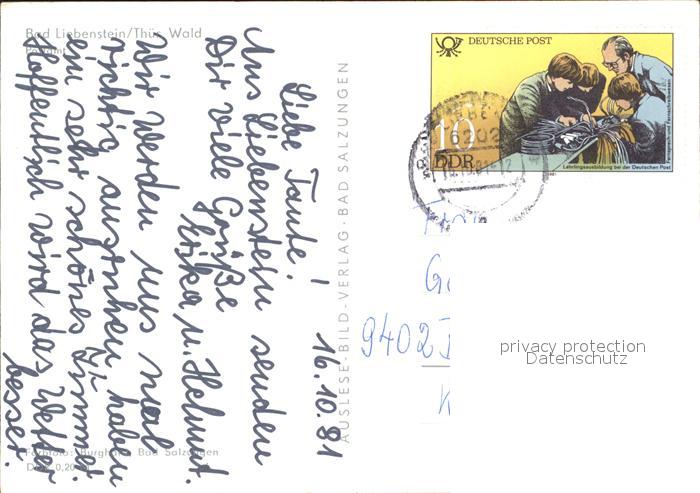 Bad Liebenstein/Thür. Wald
Postamt
16.10.81
Liebe Tante!
Aus Liebenstein senden
Dir viele Grüße
Erika u. Helmut.
Wir werden uns mal
richtig ausruhen, haben
ein sehr schönes Zimmer.
Hoffentlich wird das Wetter
besser.
AUSLESE-BILD-VERLAG · BAD SALZUNGEN
Bad Salzungen
DEUTSCHE POST
10
DDR
Lehrlingsausbildung bei der Deutschen Post
Fernsprech- und Fernschreibwesen
1981
6202
9402
privacy protection
Datenschutz